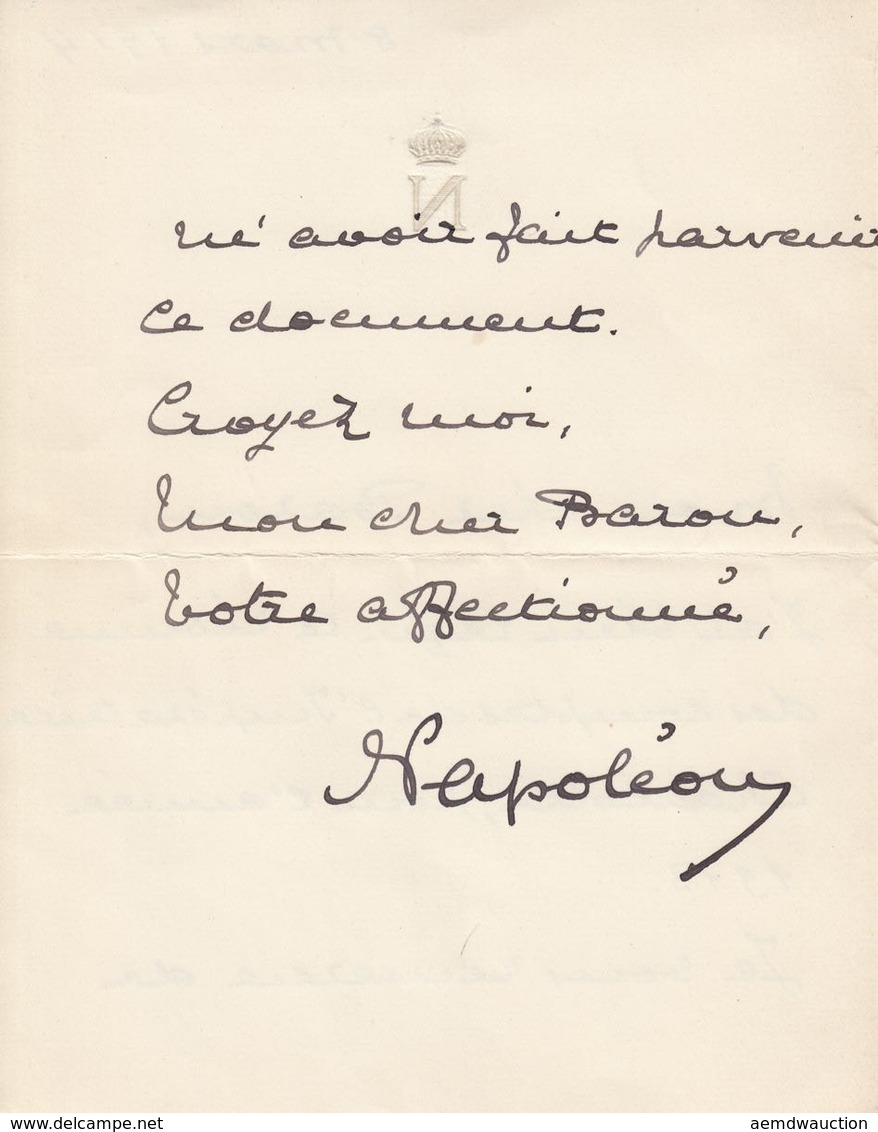 N
m'avoir fait parvenir
ce document.
Croyez moi,
Mon cher Baron,
Votre affectionné,
Napoléon
delcampe.net
aemdwauction